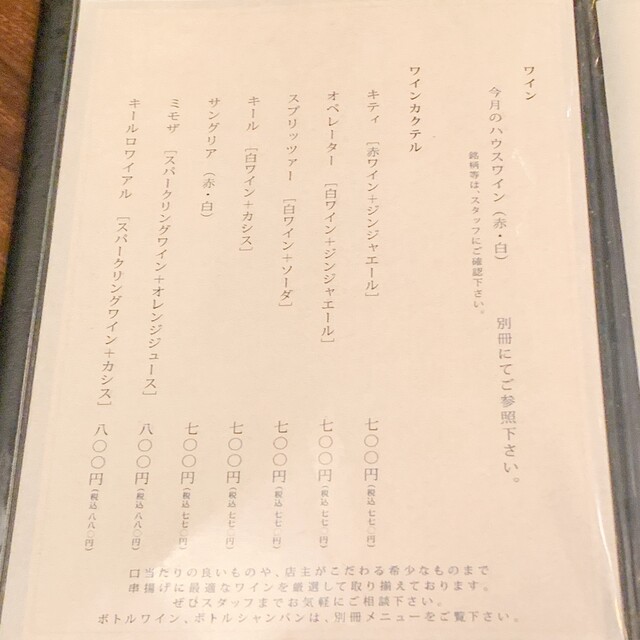 ワイン
今月のハウスワイン（赤・白）　別冊にてご参照下さい。
銘柄等は、スタッフにご確認下さい。
ワインカクテル
キティ　［赤ワイン＋ジンジャエール］　七〇〇円（税込 七七〇円）
オペレーター　［白ワイン＋ジンジャエール］　七〇〇円（税込 七七〇円）
スプリッツァー　［白ワイン＋ソーダ］　七〇〇円（税込 七七〇円）
キール　［白ワイン＋カシス］　七〇〇円（税込 七七〇円）
サングリア　（赤・白）　七〇〇円（税込 七七〇円）
ミモザ　［スパークリングワイン＋オレンジジュース］　八〇〇円（税込 八八〇円）
キールロワイアル　［スパークリングワイン＋カシス］　八〇〇円（税込 八八〇円）
口当たりの良いものや、店主がこだわる希少なものまで
串揚げに最適なワインを厳選して取り揃えております。
ぜひスタッフまでお気軽にご相談下さい。
ボトルワイン、ボトルシャンパンは、別冊メニューをご覧下さい。